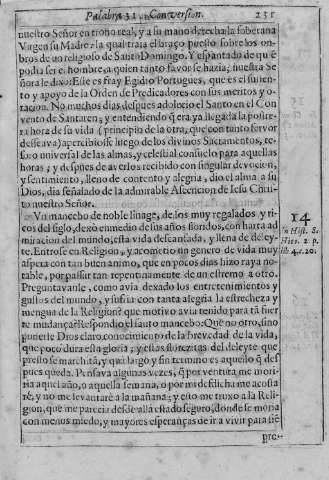 Palabra 31. Conversion. 251
nuestro Señor en trono real, y a su mano derecha la soberana
Virgen su Madre, la qual traia el braço puesto sobre los on-
bros de un religioso de Santo Domingo. Y espantado de quē
podia ser el hombre, a quien tanto favor se hazia; nuestra Se
ñora le dixo: Este es fray Egidio Portugues, que es el susten-
to y apoyo de la Orden de Predicadores con sus meritos y o-
racion. No muchos dias despues adolecio el Santo en el Con
vento de Santaren, y entendiendo q̃ era ya llegada la postre-
ra hora de su vida (principio de la otra, que con tanto fervor
desseava) apercibiose luego de los divinos Sacramentos, te-
soro universal de las almas, y celestial consuelo para aquellas
horas; y despues de averlos recibido con singular devocion,
y sentimiento, lleno de contento y alegria, dio el alma a su
Dios, dia señalado de la admirable Ascension de Iesu Christo
nuestro Señor.
Vn mancebo de noble linage, de los muy regalados y ri-
cos del siglo, dexò en medio de sus años floridos, con harta ad
miracion del mundo, esta vida descansada, y llena de deley-
te. Entrose en Religion, y acometio un genero de vida muy
aspera con tan buen animo, que en pocos dias hizo raya no-
table, por passar tan repentinamente de un estremo a otro.
Preguntavanle, como avia dexado los entretenimientos y
gustos del mundo, y sufria con tanta alegria la estrecheza y
mengua de la Religion? que motivo avia tenido para tā fuer
te mudança? Respondio el santo mancebo: Que no otro, sino
ponerle Dios claro conocimiento de la brevedad de la vida,
que poco dura esta gloria; y estas florezitas del deleyte que
presto se marchitā, y quā largo y sin termino es aquello q̃ des
pues queda. Pensava algunas vezes, q̃ por ventura me mori-
ria aquel año, o aquella semana, o por mi desdicha me acosta
rè, y no me levantarè a la mañana; y esto me truxo a la Reli-
gion, que me parecia desde allà estado seguro, donde se moria
con menos miedo, y mayores esperanças de ir a vivir para siē
pre.
14
In Hist. S.
Hier. 2 p.
lib 4.c.20.